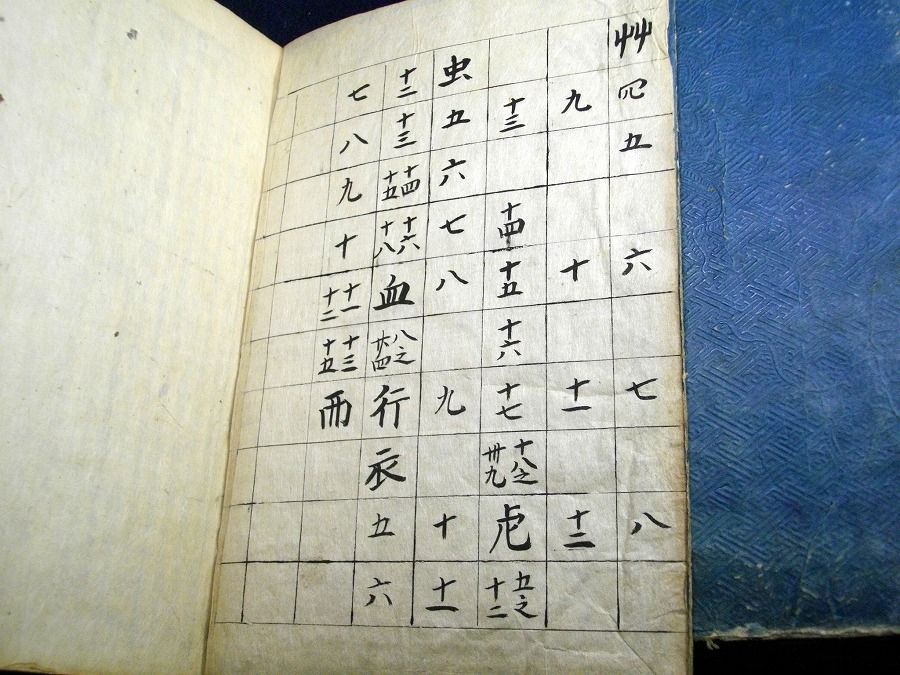 艸 四 五 六 七 八
九 十 十一 十二
十三 十四 十五 十六 十七 十八之卅九 虍 五之十二
虫 五 六 七 八 九 十 十一
十二 十三 十四十五 十六十八 血 八之廿四 行 衣 五 六
七 八 九 十 十一十二 十三十五 襾